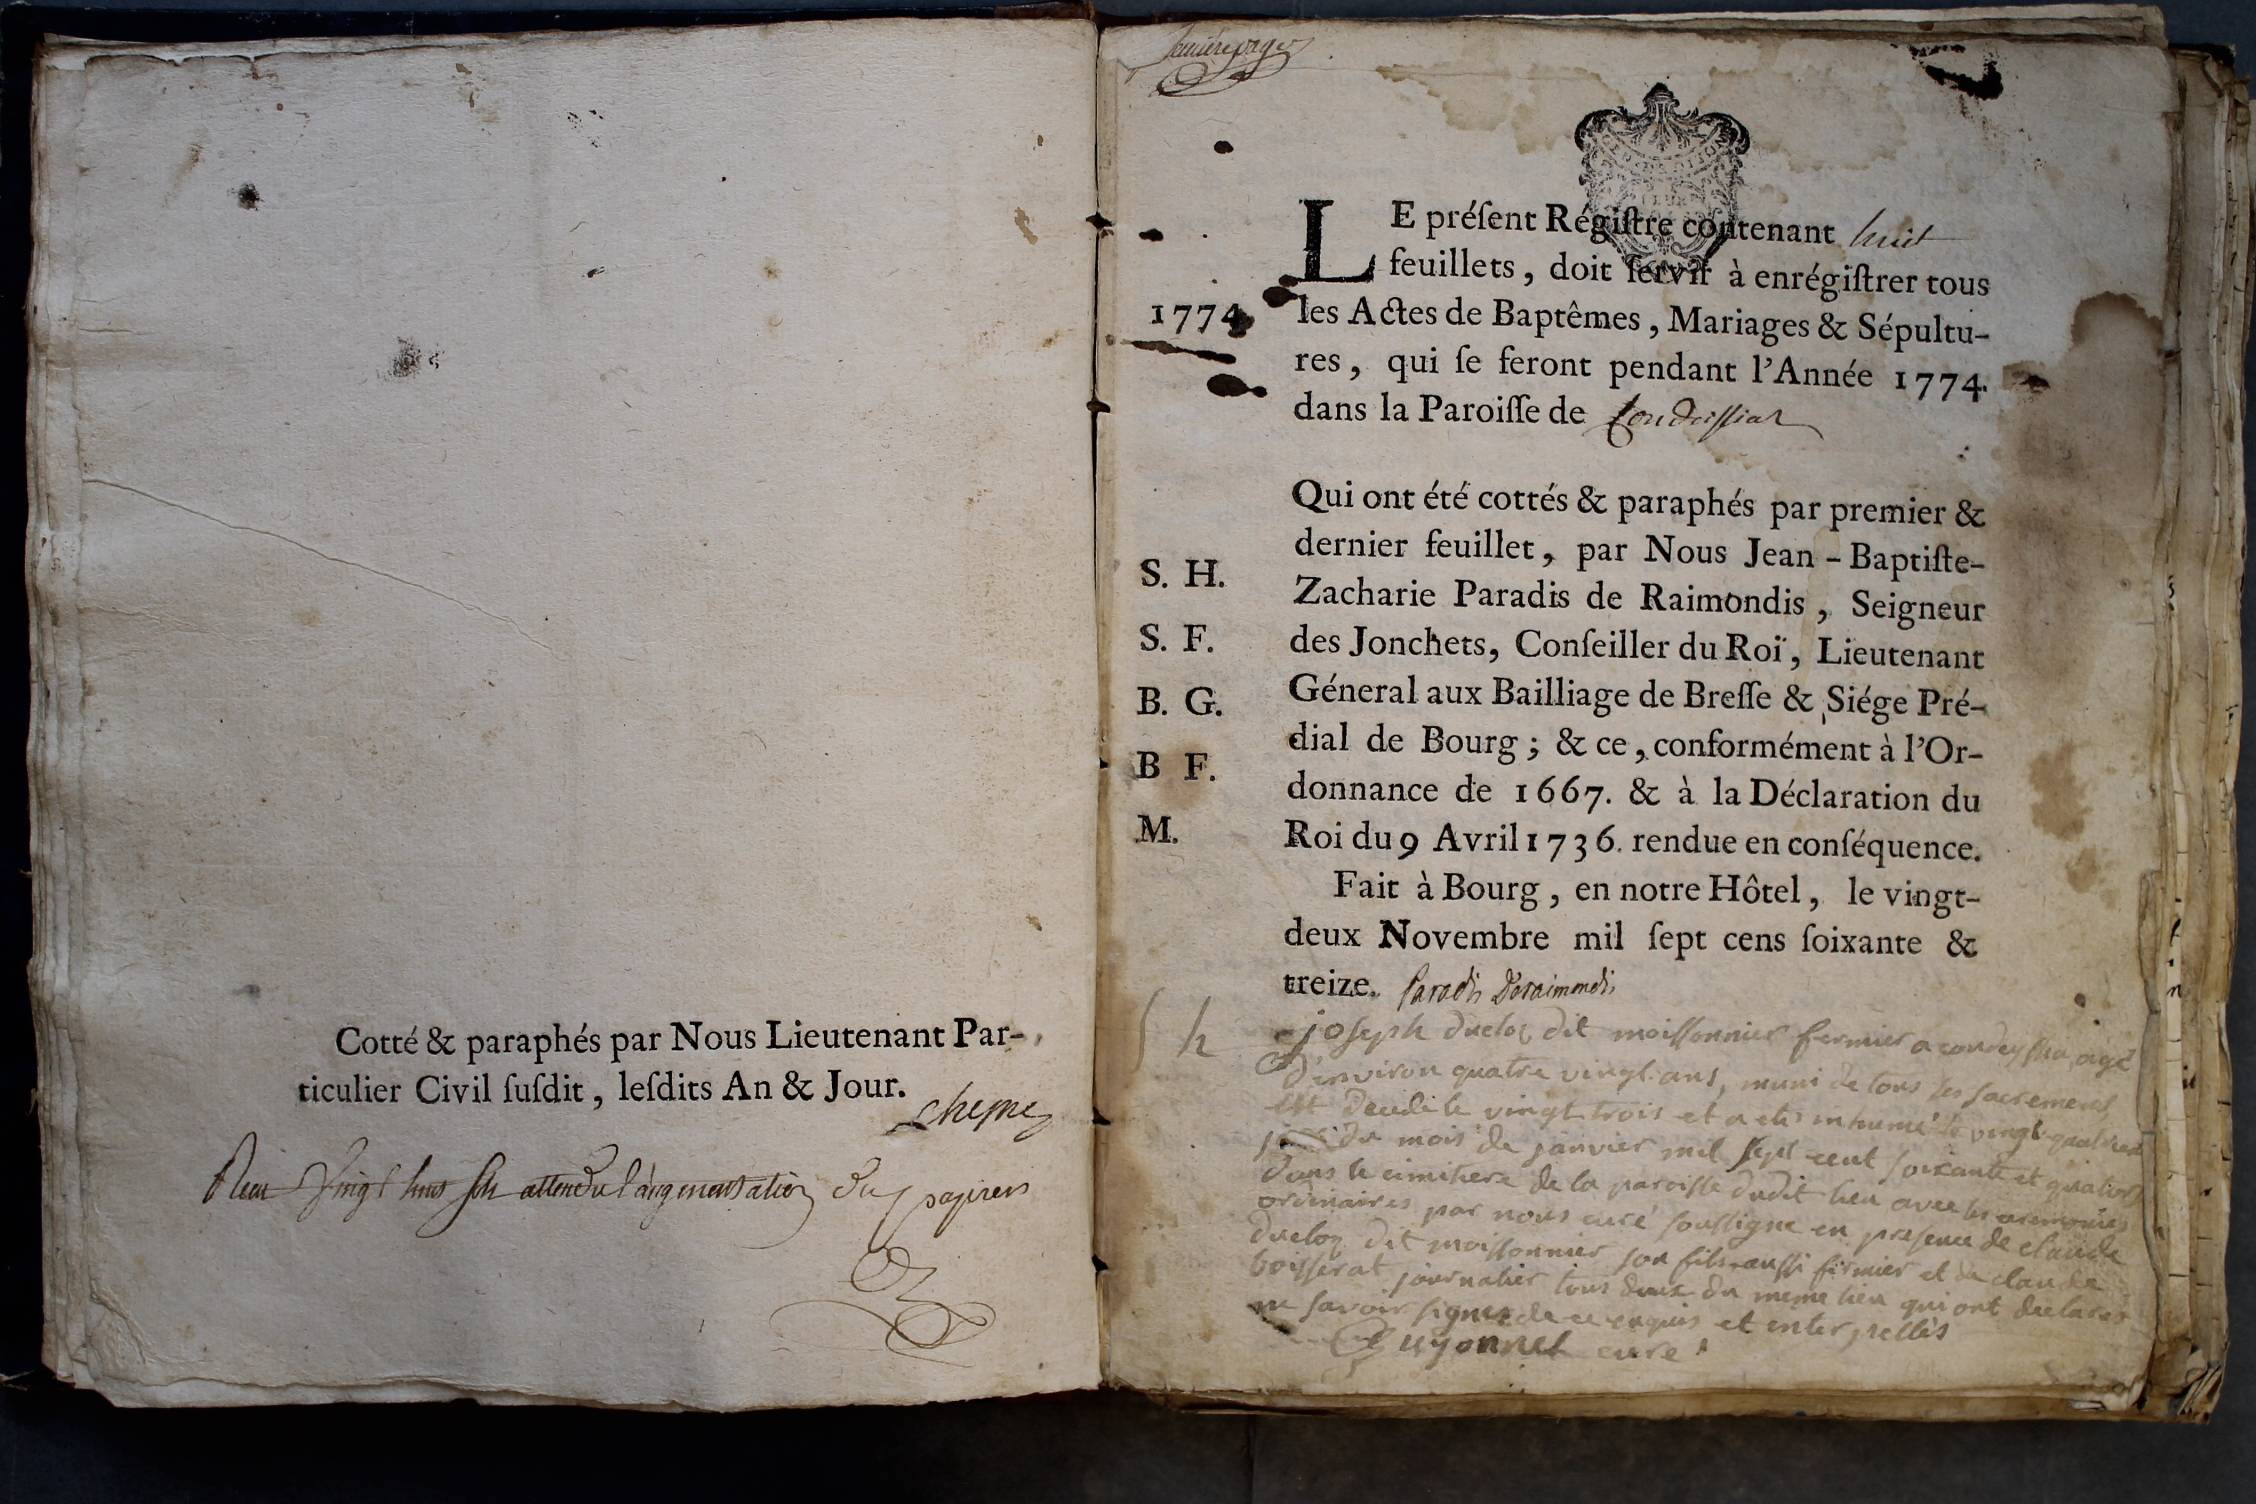 Cotté & paraphés par Nous Lieutenant Par-
ticulier Civil ſuſdit, leſdits An & Jour.
Vingt huit attendu l'augmentation du papier
premiere page
LE préſent Régiſtre contenant huit
feuillets, doit ſervir à enrégiſtrer tous
1774. les Actes de Baptêmes, Mariages & Sépultu-
res, qui ſe feront pendant l'Année 1774.
dans la Paroiſſe de Condeiſſiat
Qui ont été cottés & paraphés par premier &
dernier feuillet, par Nous Jean-Baptiſte-
S. H. Zacharie Paradis de Raimondis, Seigneur
S. F. des Jonchets, Conſeiller du Roi, Lieutenant
B. G. Géneral aux Bailliage de Breſſe & Siége Pré-
B F. dial de Bourg; & ce, conformément à l'Or-
donnance de 1667. & à la Déclaration du
M. Roi du 9 Avril 1736. rendue en conſéquence.
Fait à Bourg, en notre Hôtel, le vingt-
deux Novembre mil ſept cens ſoixante &
treize. Paradis Deraimondis
S h joseph ducloq dit moiſſonnier fermier a condeyſſia agé
d'environ quatre vingt ans, muni de tous ses sacremens
est decedé le vingt trois et a eté inhumé le vingt quatrieme
jour du mois de janvier mil sept cent soixante et quatorze
dans le cimitiere de la paroisse dudit lieu avec les ceremonies
ordinaires par nous curé souſſigné en presence de claude
ducloq dit moiſſonnier son fils auſſi fermier et de claude
boisserat journalier tous deux du meme lieu qui ont declarés
ne savoir signer de ce enquis et interpellés
Guyonnet curé